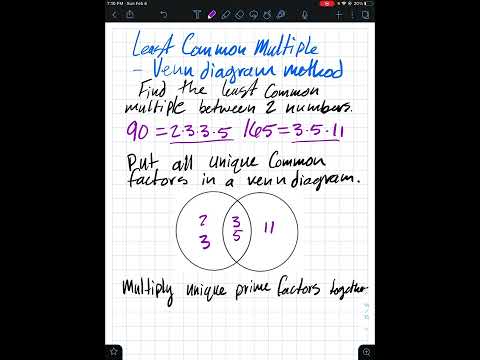 7:10 PM Sun Feb 6
20%
Least Common Multiple
- Venn diagram method
Find the least common
multiple between 2 numbers.
90 = 2·3·3·5 165 = 3·5·11
Put all unique Common
factors in a venn diagram.
2 3 11
3 5
Multiply unique prime factors together